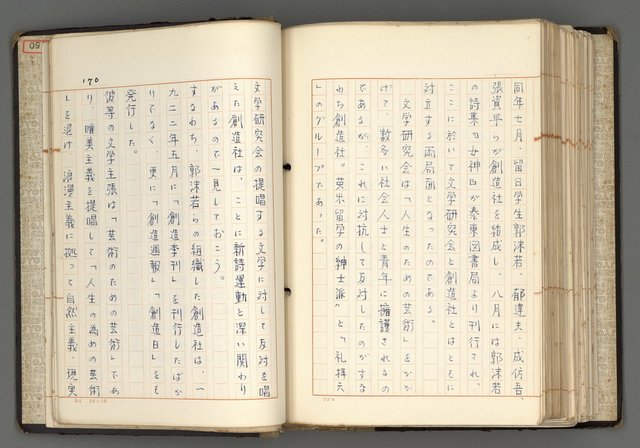 同年七月、留日学生郭沫若、郁達夫、成仿吾、
張資平らが創造社を結成し、八月には郭沫若
の詩集『女神』が泰東図書局より刊行され、
ここに於いて文学研究会と創造社とはともに
対立する両局面となったのである。
文学研究会は「人生のための芸術」をかか
げて、数多い社会人士と青年に擁護されるの
であるが、これに対抗して反対したのがすな
わち創造社"英米留学の紳士派"と"礼拝六
"のグループであった。
文学研究会の提唱する文学に対して反対を唱
えた創造社は、ことに新詩運動と深い関わり
があるので一見しておこう。
すなわち、郭沫若らの組織した創造社は、一
九二二年五月に「創造季刊」を刊行したばか
りでなく、更に「創造週報」「創造日」をも
発行した。
彼等の文学主張は「芸術のための芸術」であ
り、唯美主義を提唱して「人生の為めの芸術
」を退け、浪漫主義に拠って自然主義、現実
170